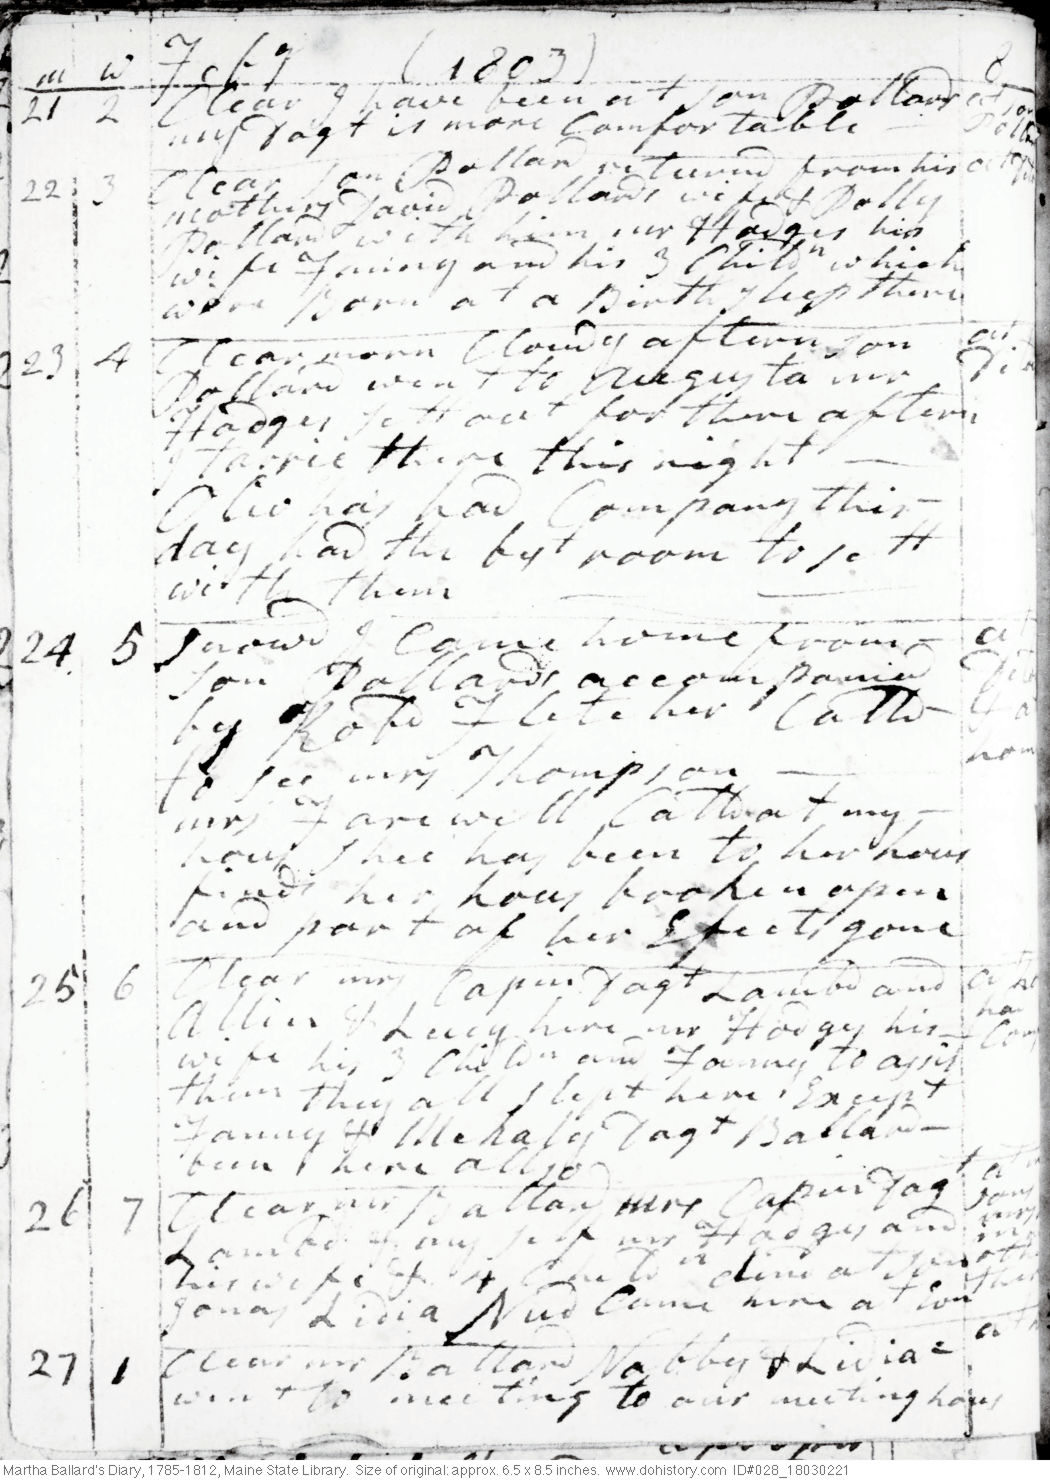 m w Feby (1803) 8
21 2 Clear I have been at son Pollards at son
my Dagt is more Comfortable — Pollards
22 3 Clear son Pollard returnd from his at
mothers David Pollards wife & Polly
Pollard with him mr Hodges his
wife Fanny and his 3 Childn which
were Born at a Birth sleep there
23 4 Clear morn Cloudy aftern son at
Pollard went to Augusta mr
Hodges sett out for there aftern
tarrie there this night —
has had Company this
day had the best room to sett
with them
24 5 snowd I Came home from at
son Pollards accompanied
by Robd Fletcher Calld &
to see mrs Thompson — home
mrs Farewell Calld at my
hous shee has been to her hous
finds her hous broken open
and part of her Efects gone
25 6 Clear mrs Capin Dagt Lambd and at
Allin & Lucy here mr Hodges his
wife his 3 Childn and Fanny to assist
them they all slept here Except
Fanny & Mehaly Dagt Ballard
been here allso
26 7 Clear mr Ballard mrs Capin Dagt at
Lambd & my self mr Hodges and
his wife & 4 Childn dind at son
Jonas Lidia Nud Came here
27 1 Clear mr Ballard Nabby & Lidia at
went to meeting to our meeting hous
Martha Ballard's Diary, 1785-1812, Maine State Library. Size of original: approx. 6.5 x 8.5 inches. www.dohistory.com ID#028_18030221